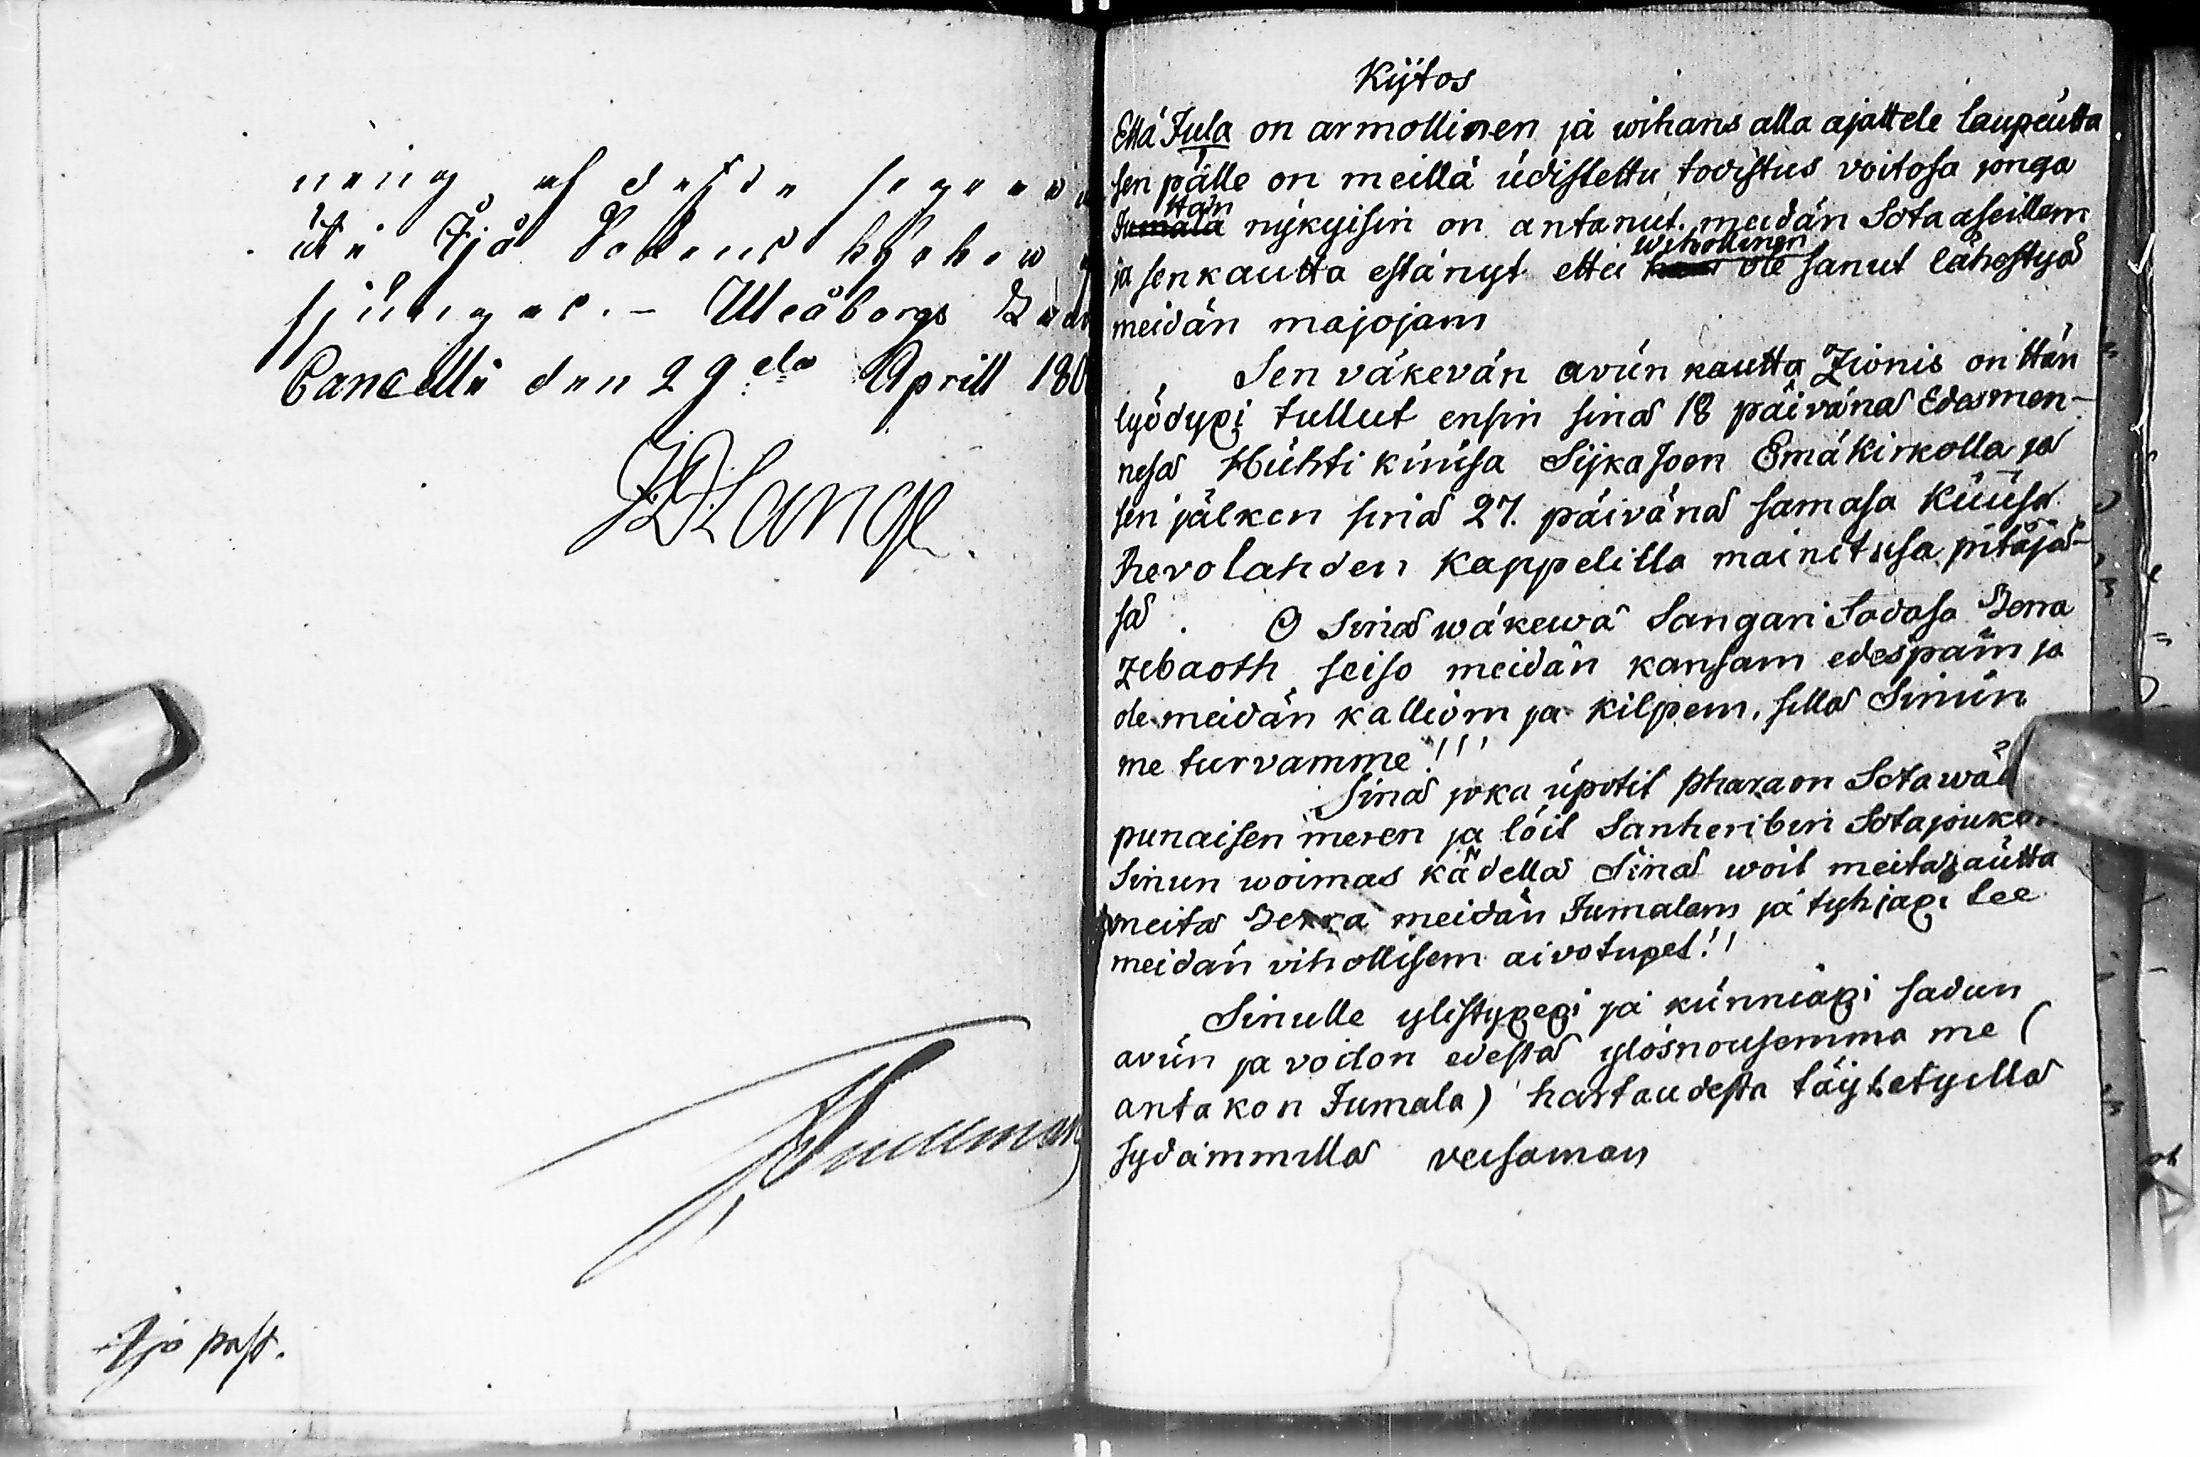 ning af desse segrar
uti Ijå Sockens kyrkor
sjunges. – Uleåborgs Lands
Cancelli den 29de Aprill 180
Lange
Ijo past.
Kijtos
Että Jula on armollinen ja wihans alla ajattele laupeutta
sen pälle on meillä udistettu todistus voitosa jonga
Jumala Hän nykyisin on antanut meidän Sota aseillem
ja senkautta estänyt ettei wihollinen ole sanut lähestyä
meidän majojam
Sen väkevän avun kautta Zionis on Hän
lyödyxi tullut ensin sinä 18 päivänä Edesmen-
nesä Huhti kuusa Sijkajoen Emäkirkolla ja
sen jälken sinä 27. päivänä samasa Kuusa
Revolahden Kappelilla mainitusa pitäjä-
sä. O Sinä wäkewä Sangari Sadasa Herra
Zebaoth seiso meidän kansam edespäin ja
ole meidän kalliom ja kilpem, sillä Sinun
me turvamme!!!
Sinä joka upotit Pharaon Sotawä
punaisen meren ja löit Sanheribin Sotajoukon
Sinun woimas kädellä Sinä woit meitä autta
meitä Herra meidän Jumalam ja tyhjäxi tee
meidän vihollisem aivotuxet!!
Sinulle ylistyxexi ja kunniaxi sadun
avun ja voiton edestä ylösnousemma me (
antakon Jumala) hartaudesta täytetyillä
sydämmillä veisaman